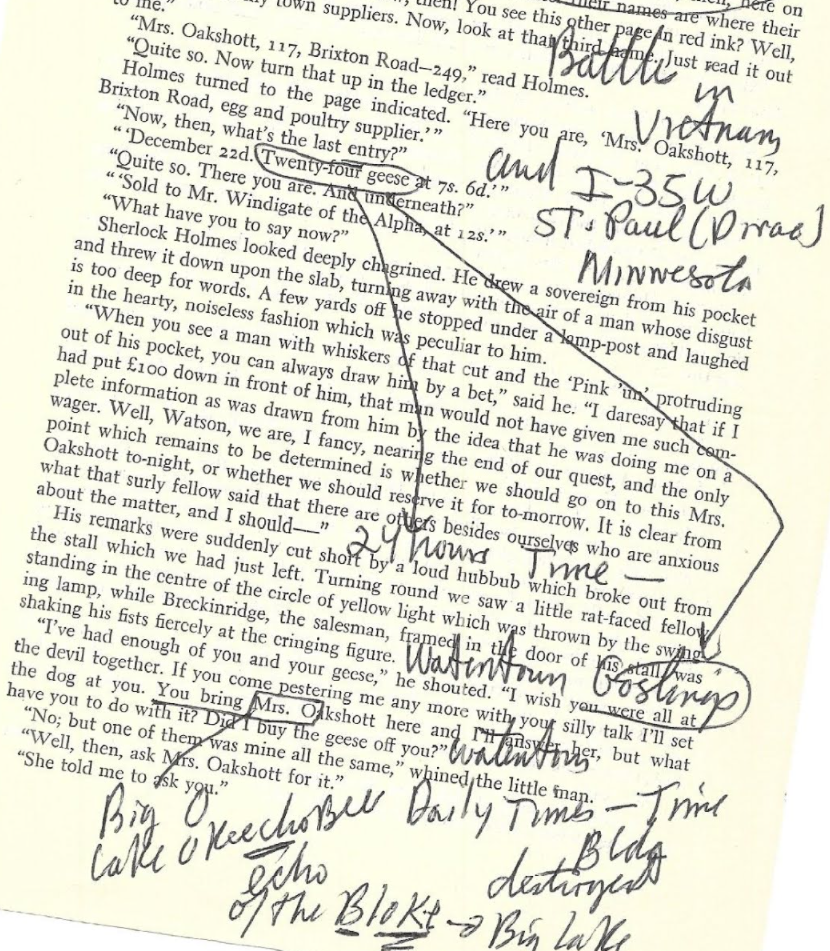 here on
then! You see this other page in red ink? Well,
their names are where their
town suppliers. Now, look at that third name. Just read it out
to me."
"Mrs. Oakshott, 117, Brixton Road—249," read Holmes.
"Quite so. Now turn that up in the ledger."
Holmes turned to the page indicated. "Here you are, 'Mrs. Oakshott, 117,
Brixton Road, egg and poultry supplier.' "
"Now, then, what's the last entry?"
" 'December 22d. Twenty-four geese at 7s. 6d.' "
"Quite so. There you are. And underneath?"
" 'Sold to Mr. Windigate of the Alpha, at 12s.' "
"What have you to say now?"
Battle
in
Vietnam
and I-35W
St. Paul
Minnesota
Sherlock Holmes looked deeply chagrined. He drew a sovereign from his pocket
and threw it down upon the slab, turning away with the air of a man whose disgust
is too deep for words. A few yards off he stopped under a lamp-post and laughed
in the hearty, noiseless fashion which was peculiar to him.
"When you see a man with whiskers of that cut and the 'Pink 'un' protruding
out of his pocket, you can always draw him by a bet," said he. "I daresay that if I
had put £100 down in front of him, that man would not have given me such com-
plete information as was drawn from him by the idea that he was doing me on a
wager. Well, Watson, we are, I fancy, nearing the end of our quest, and the only
point which remains to be determined is whether we should go on to this Mrs.
Oakshott to-night, or whether we should reserve it for to-morrow. It is clear from
what that surly fellow said that there are others besides ourselves who are anxious
about the matter, and I should——"
24 hours Time —
His remarks were suddenly cut short by a loud hubbub which broke out from
the stall which we had just left. Turning round we saw a little rat-faced fellow
standing in the centre of the circle of yellow light which was thrown by the swing-
ing lamp, while Breckinridge, the salesman, framed in the door of his stall, was
shaking his fists fiercely at the cringing figure.
Watertown Goslings
"I've had enough of you and your geese," he shouted. "I wish you were all at
the devil together. If you come pestering me any more with your silly talk I'll set
the dog at you. You bring Mrs. Oakshott here and I'll answer her, but what
have you to do with it? Did I buy the geese off you?"
Watertown
"No; but one of them was mine all the same," whined the little man.
"Well, then, ask Mrs. Oakshott for it."
"She told me to ask you."
Big O Daily Times — Time
Lake OKeechoBee Bldg
echo destroyed
of the BloKe → Big Lake